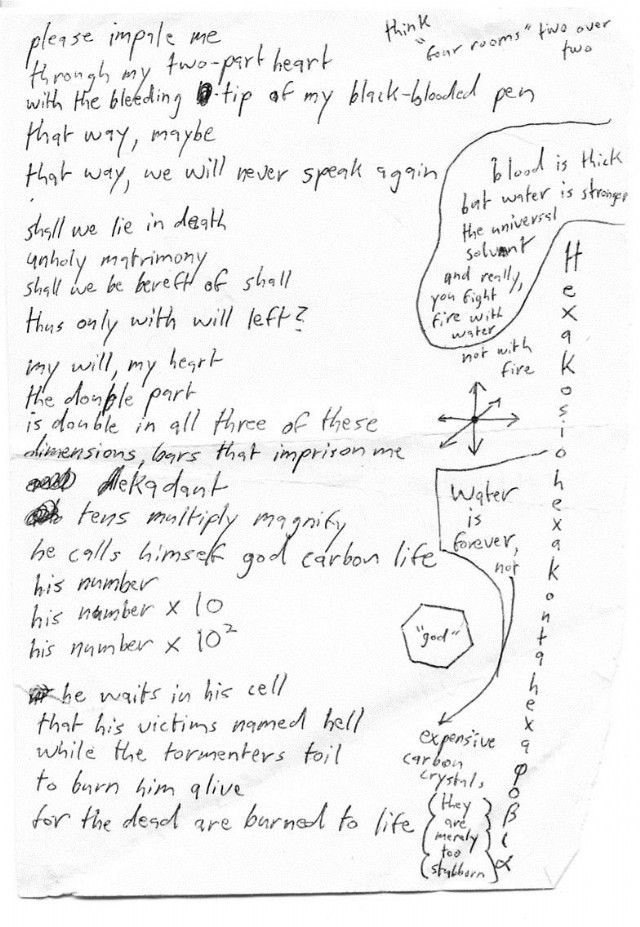 please impale me
through my two-part heart
with the bleeding tip of my black-blooded pen
that way, maybe
that way, we will never speak again
shall we lie in death
unholy matrimony
shall we be bereft of shall
thus only with will left?
my will, my heart
the double part
is double in all three of these
dimensions, bars that imprison me
dekadant
tens multiply magnify
he calls himself god carbon life
his number
his number x 10
his number x 10²
he waits in his cell
that his victims named hell
while the tormenters toil
to burn him alive
for the dead are burned to life
think
"four rooms" two over
two
blood is thick
but water is stronger
the universal
solvent
and really,
you fight
fire with
water
not with
fire
Water
is
forever,
not
"god"
expensive
carbon
crystals
(they
are
merely
too
stubborn)
Hexakosiohexakontahexaφoβια